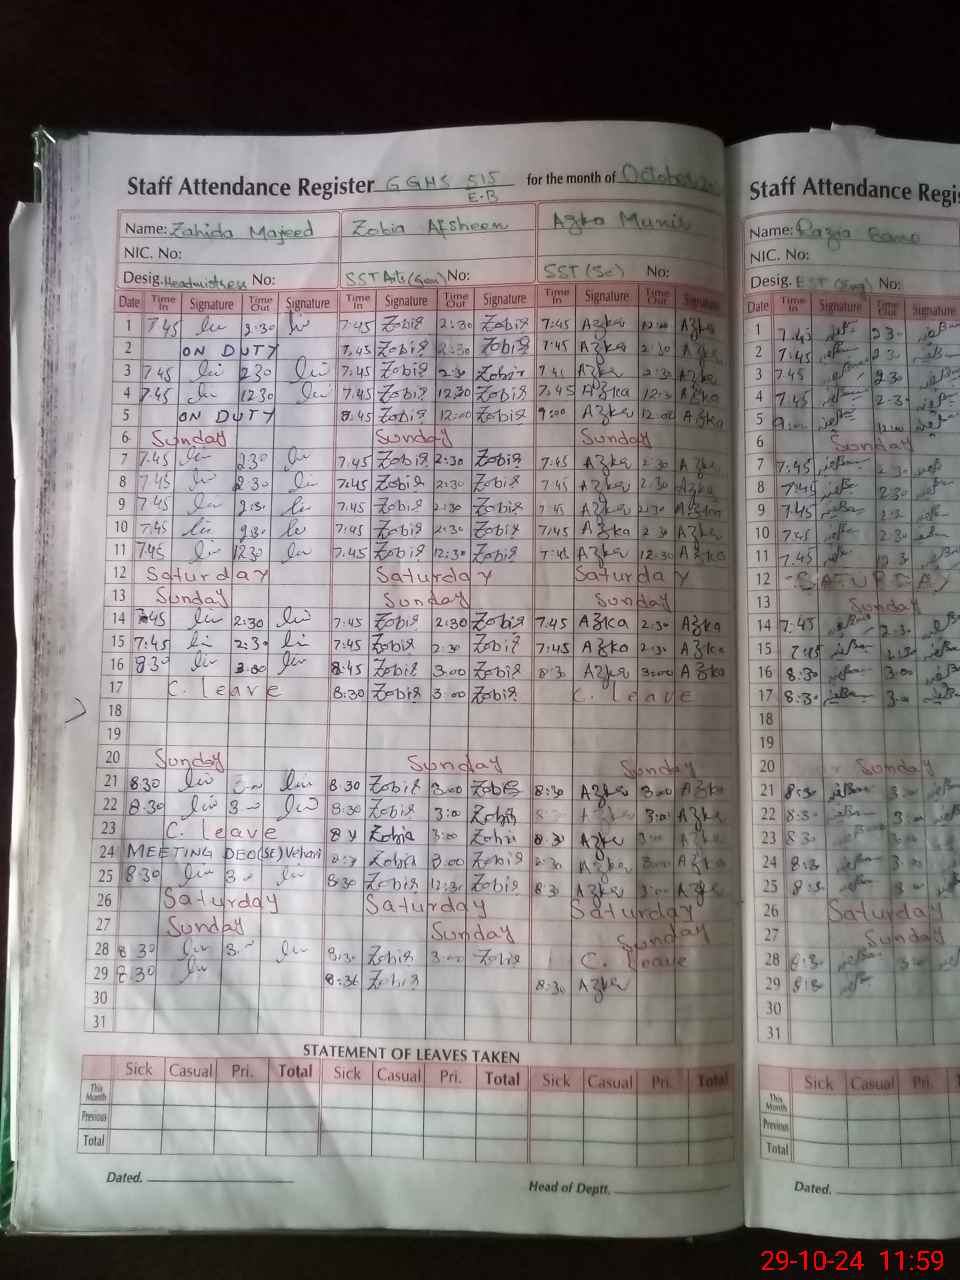 Staff Attendance Register GGHS 515 E.B for the month of October
Name: Zahida Majeed Zobia Afsheen Azka Munir
NIC. No:
Desig. Headmistress No: SST Arts (Gen) No: SST (Sc) No:
Date Time In Signature Time Out Signature Time In Signature Time Out Signature Time In Signature Time Out Signature
1 7:45 2:30 7:45 Zobia 2:30 Zobia 7:45 Azka Azka
2 ON DUTY 7:45 Zobia 2:30 Zobia 7:45 Azka 2:30 Azka
3 7:45 2:30 7:45 Zobia 2:30 Zobia Azka 2:30 Azka
4 7:45 12:30 7:45 Zobia 12:30 Zobia 7:45 Azka 12:30 Azka
5 ON DUTY Zobia 12:00 Zobia 9:00 Azka 12:00 Azka
6 Sunday Sunday Sunday
7 7:45 2:30 7:45 Zobia 2:30 Zobia 7:45 Azka 2:30 Azka
8 7:45 2:30 7:45 Zobia 2:30 Zobia 7:45 Azka 2:30 Azka
9 7:45 2:30 7:45 Zobia 2:30 Zobia 7:45 Azka 2:30 Azka
10 7:45 2:30 7:45 Zobia 2:30 Zobia 7:45 Azka 2:30 Azka
11 7:45 12:30 7:45 Zobia 12:30 Zobia 7:45 Azka 12:30 Azka
12 Saturday Saturday Saturday
13 Sunday Sunday Sunday
14 7:45 2:30 7:45 Zobia 2:30 Zobia 7:45 Azka 2:30 Azka
15 7:45 2:30 7:45 Zobia 2:30 Zobia 7:45 Azka 2:30 Azka
16 8:30 3:00 8:45 Zobia 3:00 Zobia 8:30 Azka 3:00 Azka
17 C. leave 8:30 Zobia 3:00 Zobia C. leave
18
19
20 Sunday Sunday Sunday
21 8:30 3:00 8:30 Zobia 3:00 Zobia 8:30 Azka 3:00 Azka
22 8:30 3:00 8:30 Zobia 3:00 Zobia Azka 3:00 Azka
23 C. leave Zobia 3:00 Zobia 8:30 Azka 3:00 Azka
24 MEETING DEO(SE) Vehari Zobia 3:00 Zobia 8:30 Azka 3:00 Azka
25 8:30 3:00 8:30 Zobia 12:30 Zobia 8:30 Azka 3:00 Azka
26 Saturday Saturday Saturday
27 Sunday Sunday Sunday
28 8:30 3:00 8:30 Zobia 3:00 Zobia C. leave
29 8:30 8:36 Zobia 8:30 Azka
30
31
STATEMENT OF LEAVES TAKEN
Sick Casual Pri. Total Sick Casual Pri. Total Sick Casual Pri. Total
This Month
Previous
Total
Dated. Head of Deptt.
Staff Attendance Regis
Name: Razia Bano
NIC. No:
Desig. EST (Eng) No:
Date Time In Signature Time Out Signature
1 7:45 2:30
2 7:45 2:30
3 7:45 2:30
4 7:45 2:30
5 12:00
6 Sunday
7 7:45 2:30
8 7:45 2:30
9 7:45 2:30
10 7:45 2:30
11 7:45 12:30
12 SATURDAY
13 Sunday
14 7:45 2:30
15 7:45 2:30
16 8:30 3:00
17 8:30 3:00
18
19
20 Sunday
21 8:30 3:00
22 8:30 3:00
23 8:30 3:00
24 8:30 3:00
25 8:30 3:00
26 Saturday
27 Sunday
28 8:30 3:00
29 8:30
30
31
Sick Casual Pri.
This Month
Previous
Total
Dated.
29-10-24 11:59